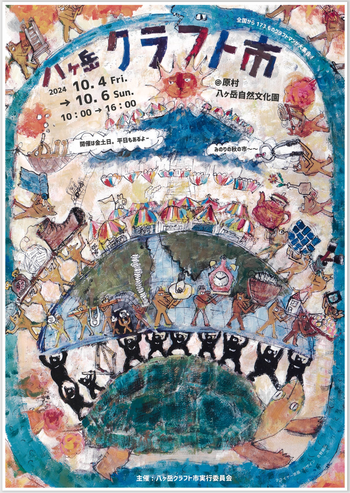 八ヶ岳 クラフト市
2024 10.4 Fri.
→ 10.6 Sun.
10:00 → 16:00
@原村
八ヶ岳自然文化園
開催は金土日。平日もあるよ〜
みのりの秋の市〜〜
主催：八ヶ岳クラフト市実行委員会